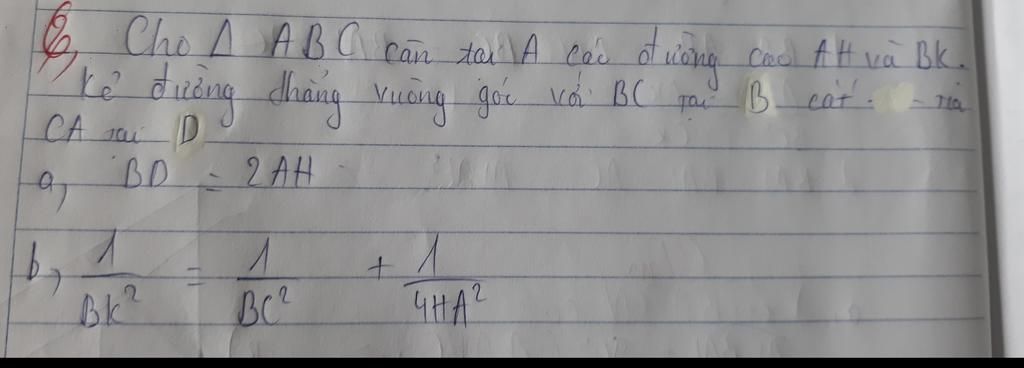 Cho Δ ABC cân tại A các đường cao AH và BK.
kẻ đường thẳng vuông góc với BC tại B cắt tia
CA tại D
a, BD = 2AH
b, 1/BK² = 1/BC² + 1/4HA²